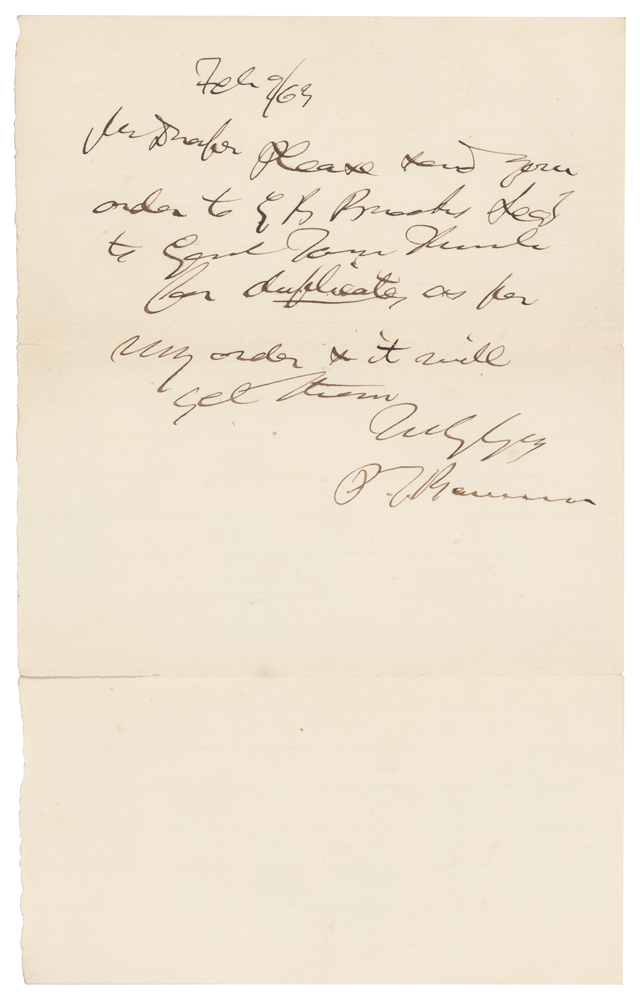 Feb 9/63
Mr Draper Please send your
order to E B Brooks Secy
to Genl Tom Thumb
for duplicates, as per
my order & it will
get them
Truly yrs
P. T. Barnum